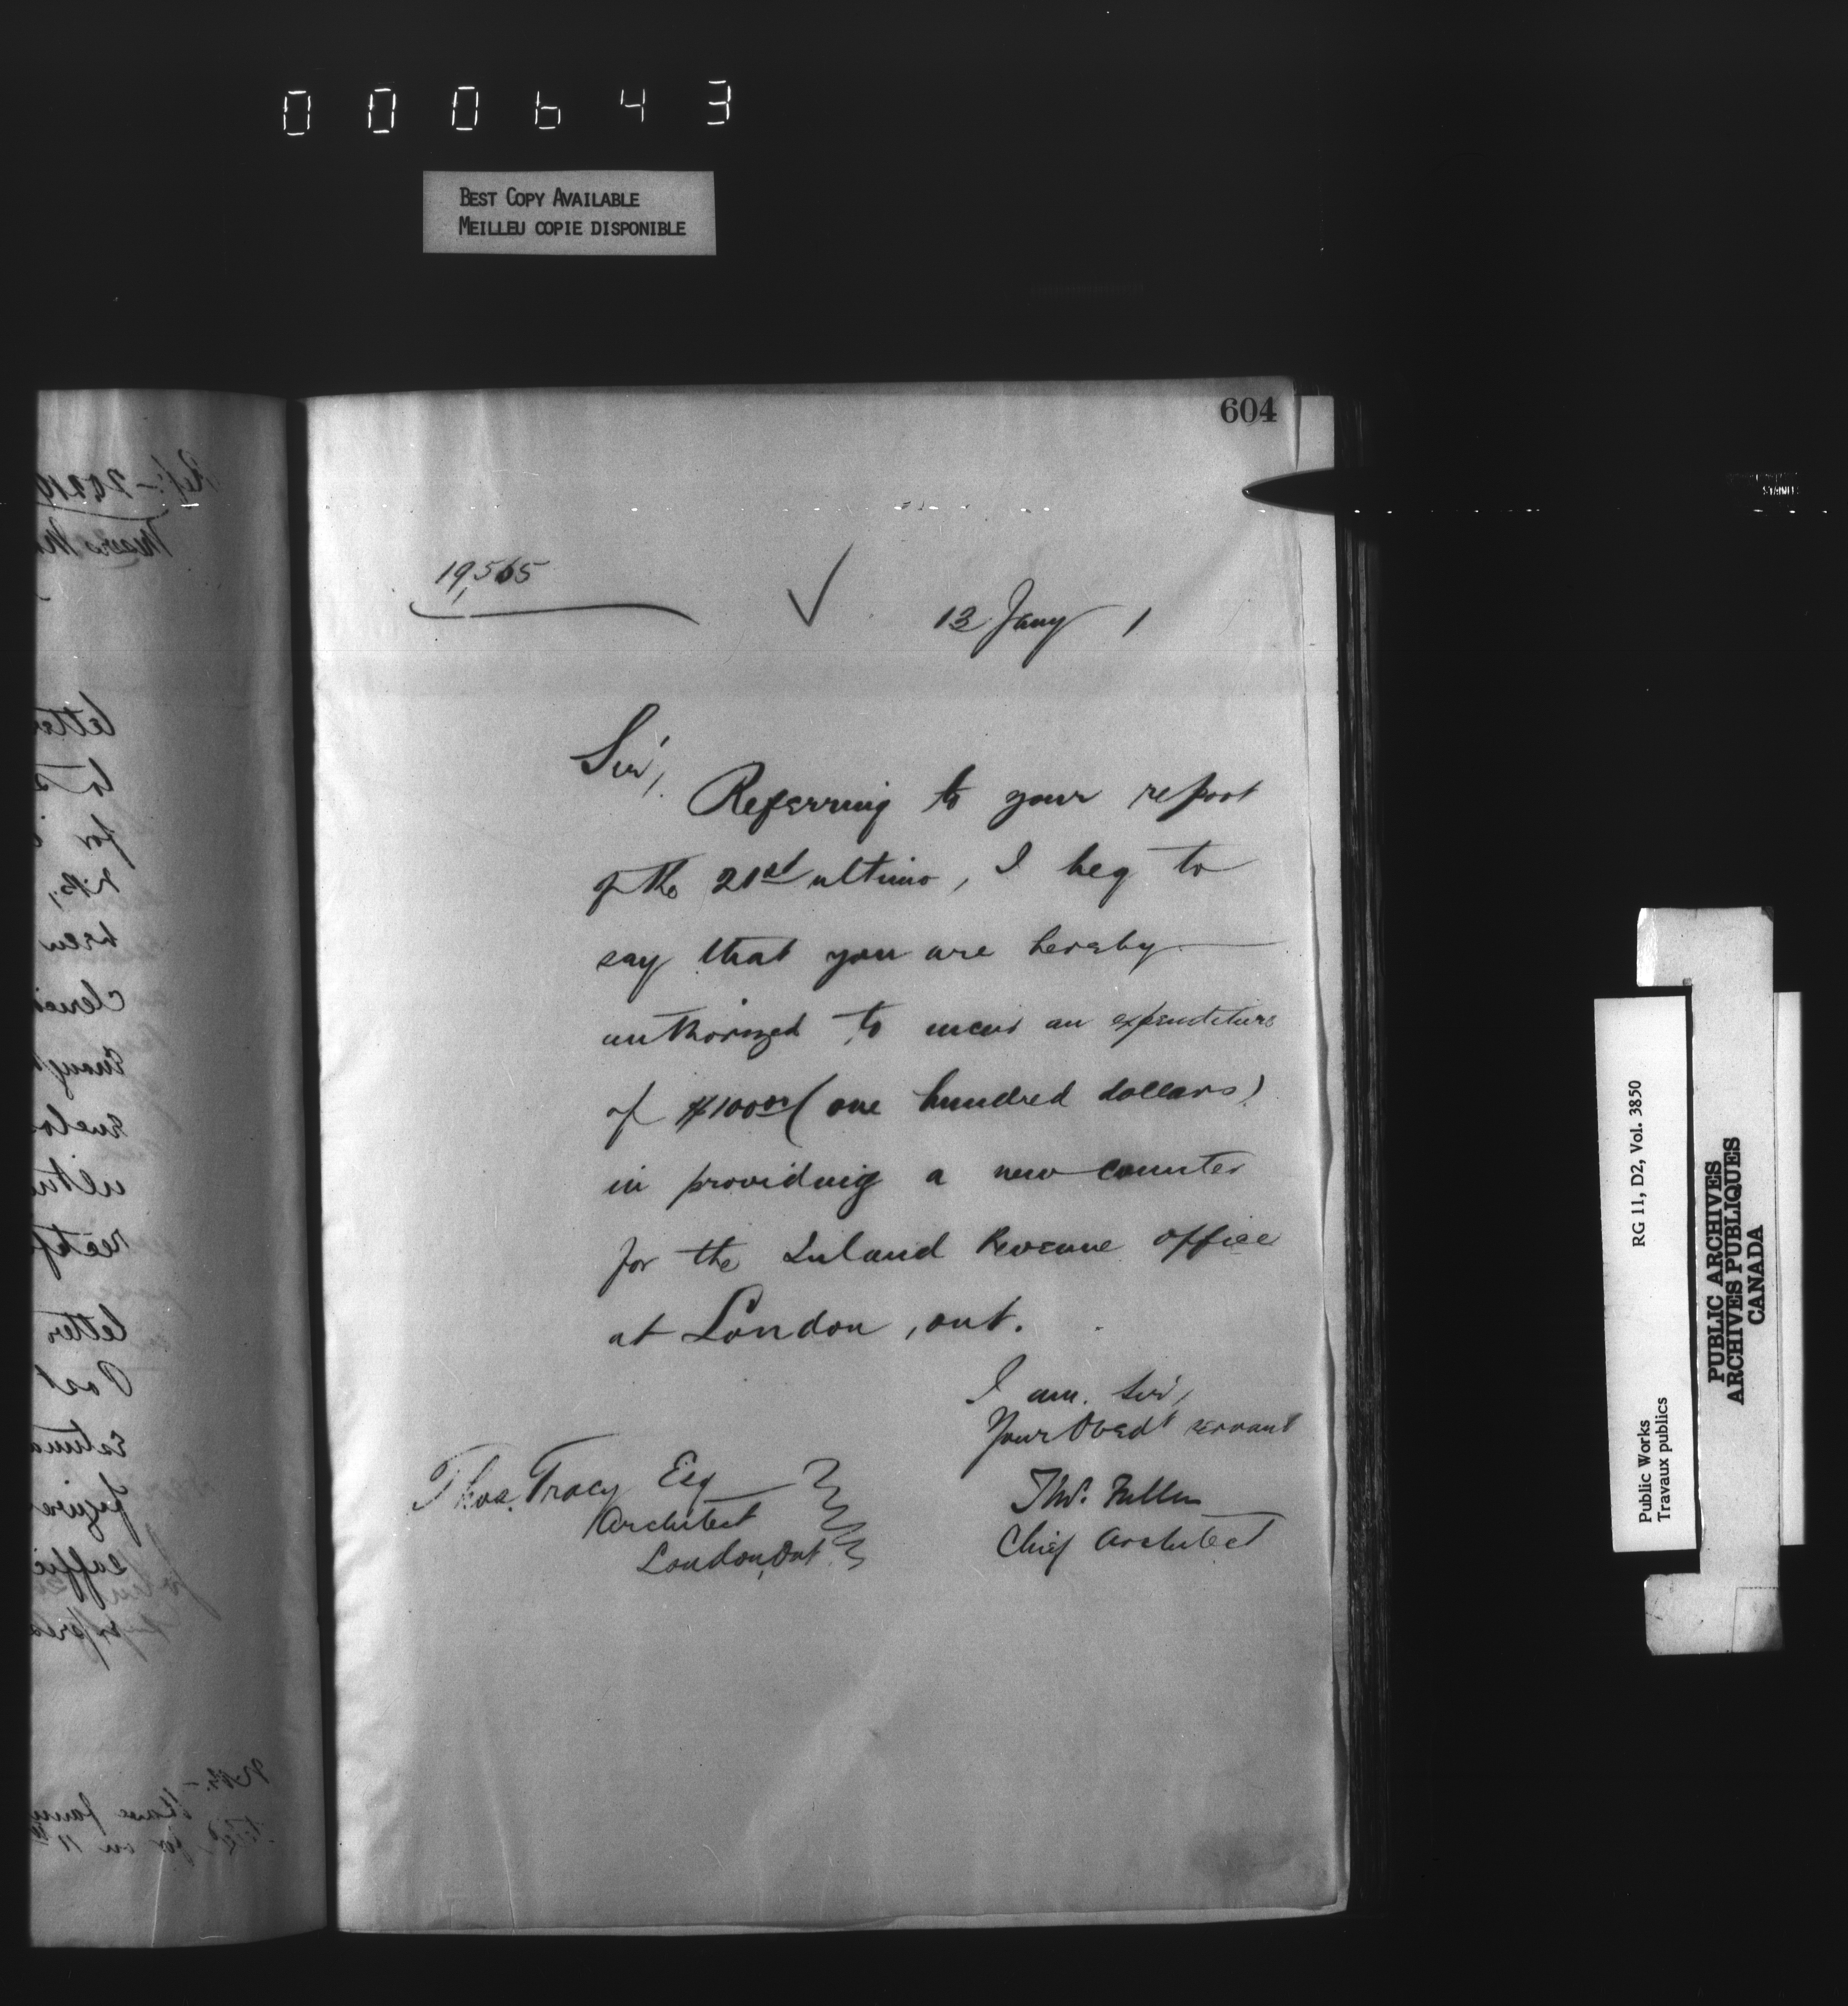 000643
BEST COPY AVAILABLE
MEILLEU COPIE DISPONIBLE
604
19,565
13 Jany 1
Sir,
Referring to your report
of the 21st ultimo, I beg to
say that you are hereby
authorized to incur an expenditure
of $100.00 (one hundred dollars)
in providing a new counter
for the Inland Revenue office
at London, Ont.
I am. Sir,
Your Obedt servant
Thos. Fuller
Chief Architect
Thos. Tracy Esq
Architect
London, Ont
letter
to
for
been
letter
Post
RG 11, D2, Vol. 3850
Public Works
Travaux publics
PUBLIC ARCHIVES
ARCHIVES PUBLIQUES
CANADA